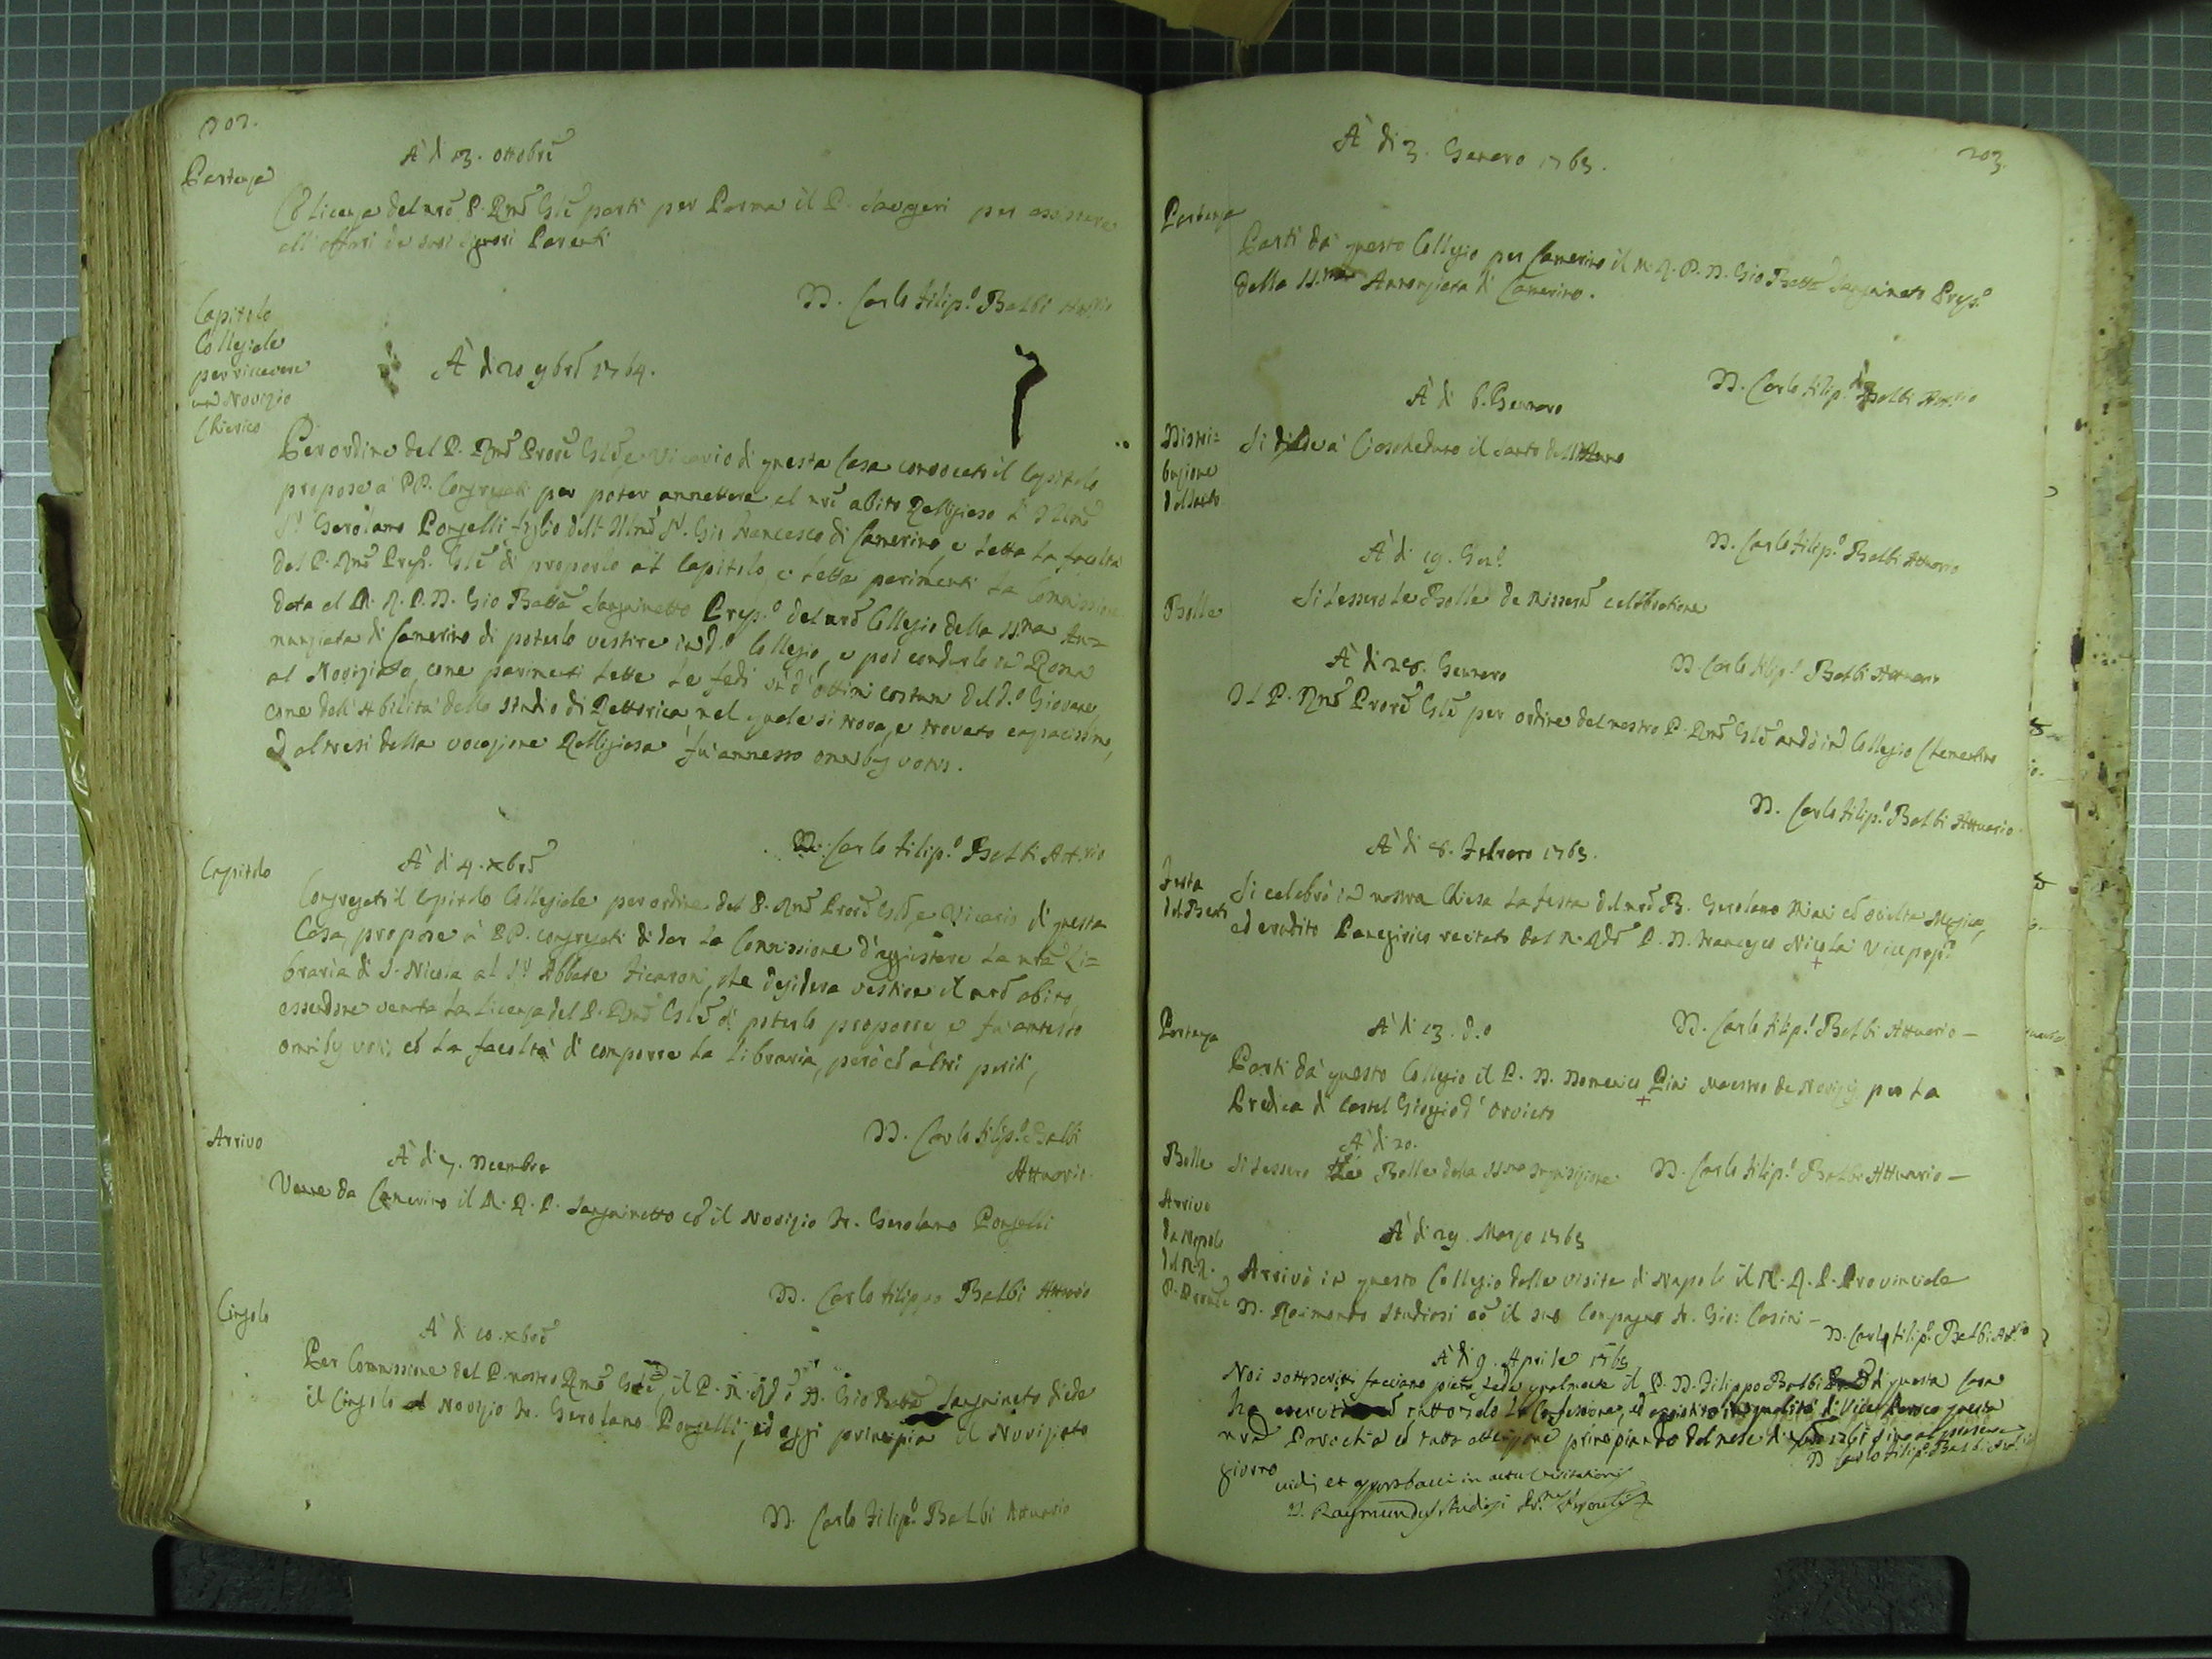 202.
Partenza
A' di 13. ottobre
Cō licenza del nrō P. Rmō Glē partì per Parma il P. Savageri per assistere
all'affari de suoi Signori Parenti
D. Carlo Filip.o Balbi Att.rio
Capitolo
Collegiale
per ricevere
un Novizio
Chierico
A' di 20 9brē 1764.
Per ordine del P. Rmō Prorē Glē, e Vicario di questa Casa convocato il Capitolo
propose a' PP. Congregati per poter annettere al nrō abito Religioso l'Illmō
S.r Gerolamo Ponzelli figlio dell'Illmō S.r Gio Francesco di Camerino, e letta la facoltà
del P. Rmō Prep. Glē di proporlo al Capitolo, e letta parimenti la Commissione
data al M. R. P. D. Gio Battā Sanguinetto Prep.o del nrō Collegio della SS.ma An=
nunziata di Camerino di poterlo vestire in d.o Collegio, e poi condurlo in Roma
al Noviziato, come parimenti lette le fedi sì d'ottimi costumi del d.o Giovane,
come dell'Abilità dello studio di Rettorica, nel quale si trova, e trovato capacissimo,
ed altresi della vocazione Religiosa fu annesso omnibus votis.
D. Carlo Filip.o Balbi Att.rio
Capitolo
A' di 4. xbrē
Congregato il Capitolo Collegiale per ordine del P. Rmō Prorē Glē, e Vicario di questa
Casa, propose à PP. congregati di dar la Commissione d'aggiustare la nrā Li=
braria di S. Nicola al S.r Abbate Ficaroni, che desidera vestire il nrō abito
essendone venuta la licenza del P. Rmō Glē di poterlo proporre, e fu annesso
omnibus votis cō la facoltà di comporre la libraria, però cō altri periti,
D. Carlo Filip.o Balbi
Attuario.
Arrivo
A' di 7. Dicembre
Venne da Camerino il M. R. P. Sanguinetto cō il Novizio Fr. Gerolamo Ponzelli
D. Carlo Filippo Balbi Attuario
Cingolo
A' di 10. xbrē
Per Commissione del P. nostro Rmō Glē, il P. M. Rdō D. Gio Battā Sanguineto diede
il Cingolo al Novizio Fr. Gerolamo Ponzelli, ed oggi principia il Noviziato
D. Carlo Filip.o Balbi Attuario
203.
A' di 3. Genaro 1765.
Partenza
Partì da questo Collegio per Camerino il M. R. P. D. Gio Battā Sanguineto Prep.o
della SS.ma Annonziata di Camerino.
D. Carlo Filip.o Balbi Att.rio
A' di 6. Gennaro
Distri=
buzione
del Santo
Si diede a' Ciascheduno il Santo dell'Anno
D. Carlo Filip.o Balbi Attuario
A' di 19. Gen.o
Bolle
Si lessero le Bolle de Missarū celebratione
D. Carlo Filip.o Balbi Attuario
A' di 28. Gennaro
Il P. Rmō Prorē Glē per ordine del nostro P. Rmō Glē andò in Collegio Clementino
D. Carlo Filip.o Balbi Attuario
A' di 8. Febraro 1765.
Festa
del Beato
Si celebrò in nostra Chiesa la festa del nrō B. Gerolamo Miani cō scielta Musica,
ed erudito Panegirico recitato dal M. Rdō P. D. Francesco Nicolai Viceprep.o
D. Carlo Filip.o Balbi Attuario —
Partenza
A' di 13. d.o
Partì da questo Collegio il P. D. Domenico Pini Maestro de Novizij per la
Predica di Castel Giorgio d'Orvieto
A' di 20.
Bolle
Si lessero le Bolle della SS.ma Inquisizione
D. Carlo Filip.o Balbi Attuario —
Arrivo
da Napoli
del M. R.
P. Provinle
A' di 29. Marzo 1765
Arrivò in questo Collegio dalla visita di Napoli il M. R. P. Provinciale
D. Raimondo Studiosi cō il suo Compagno Fr. Gio: Casini —
D. Carlo Filip.o Balbi Att.rio
A' di 9. Aprile 1765
Noi sottoscritti facciamo piena fede qualmente il P. D. Filippo Balbi di questa Casa
ha esercitato cō tutto zelo le Confessione, ed assistito in qualità di Vice Paroco questa
nrā Parochia cō tutta attenzione principiando dal mese di 1761 sino al presente
giorno
D Carlo Filip.o Balbi Att.rio
vidi, et approbavi in actu Visitationis
D. Raymundus Studiosi